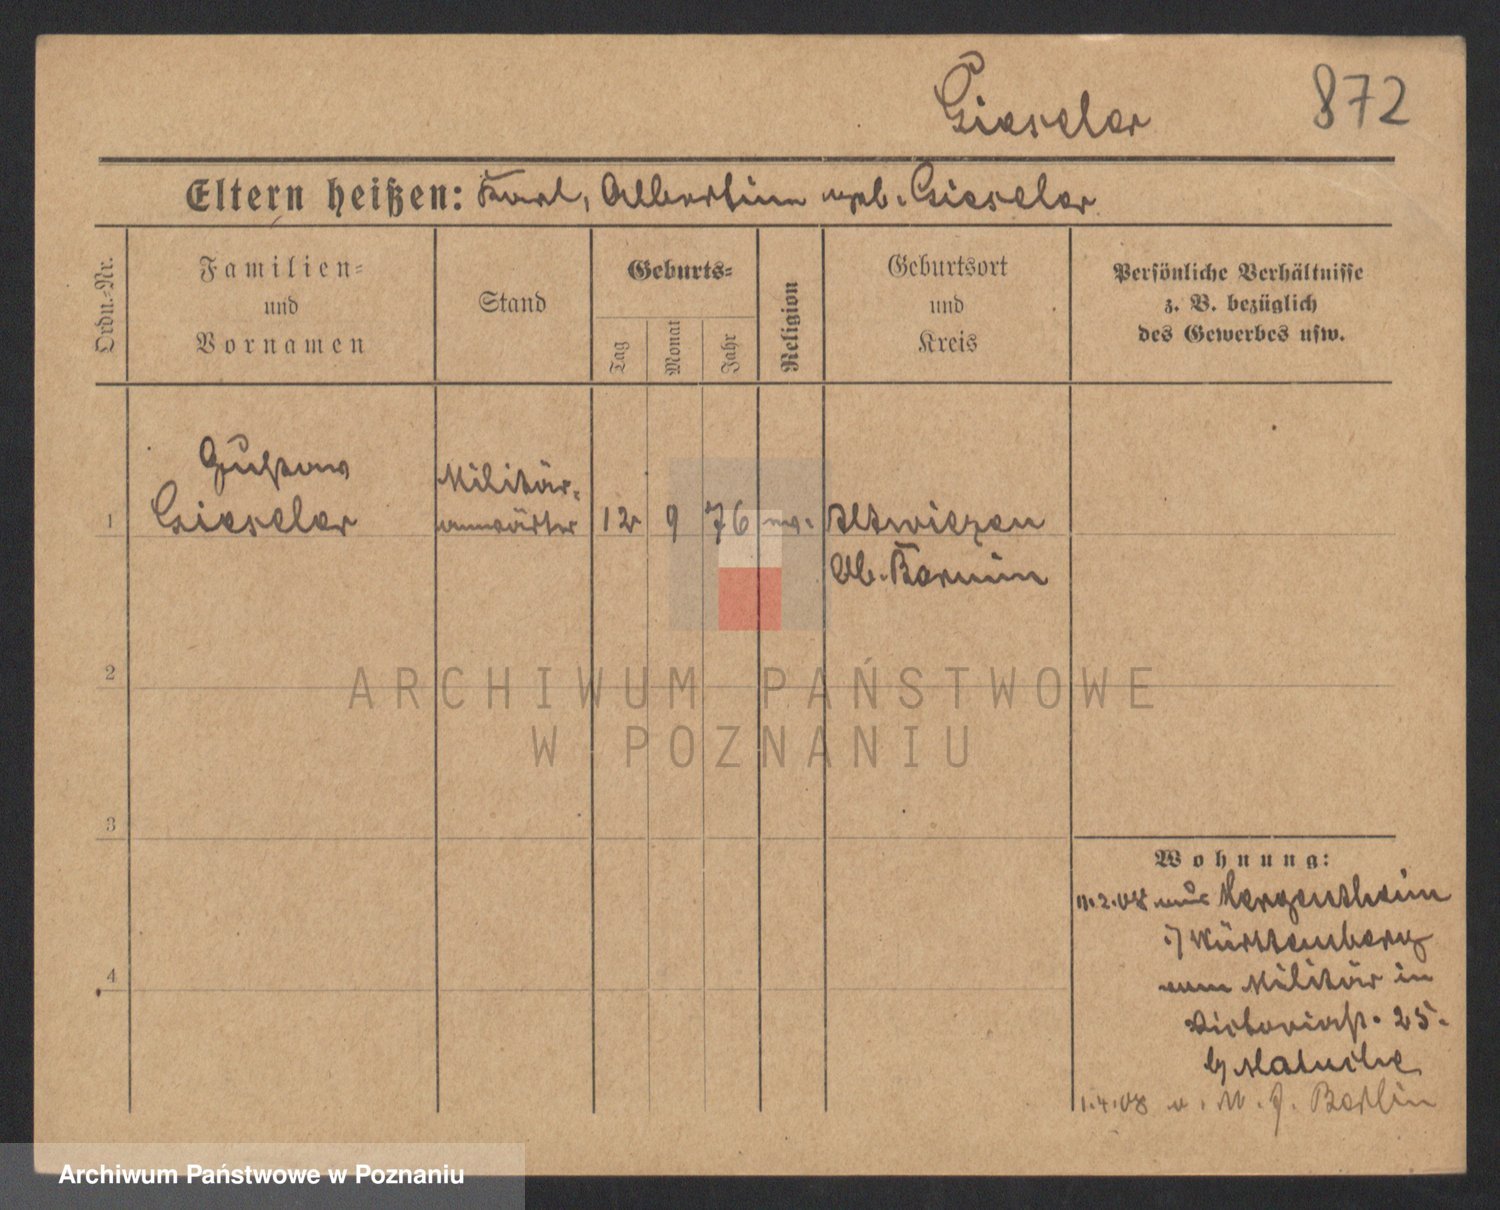 Gieseler 872
Eltern heißen: Karl, Albertine geb. Gieseler
Ordn.-Nr.
Familien-
und
Vornamen
Stand
Geburts-
Tag
Monat
Jahr
Religion
Geburtsort
und
Kreis
Persönliche Verhältnisse
z. B. bezüglich
des Gewerbes usw.
Gustav
Gieseler
Militär-
anwärter
1
12 9 76 ev.
Altwriezen
Ob. Barnim
2
3
4
ARCHIWUM PAŃSTWOWE
W POZNANIU
Wohnung:
2.08 aus Mergentheim
i/ Württemberg
vom Militär in
Victoriast. 25.
b/
1.4.08 Berlin
Archiwum Państwowe w Poznaniu